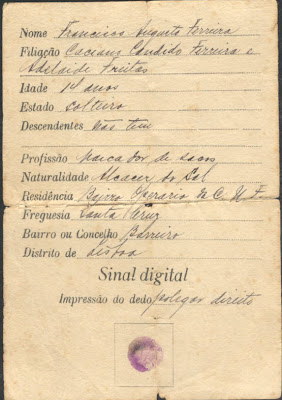 Nome Francisco Augusto Ferreira
Filiação Caciano Candido Ferreira e
Adelaide Freitas
Idade 14 anos
Estado solteiro
Descendentes não tem
Profissão marcador de sacos
Naturalidade Alcacer do Sal
Residência Bairro Operario da C. U. F.
Freguesia Santa Cruz
Bairro ou Concelho Barreiro
Distrito de Lisboa
Sinal digital
Impressão do dedo polegar direito